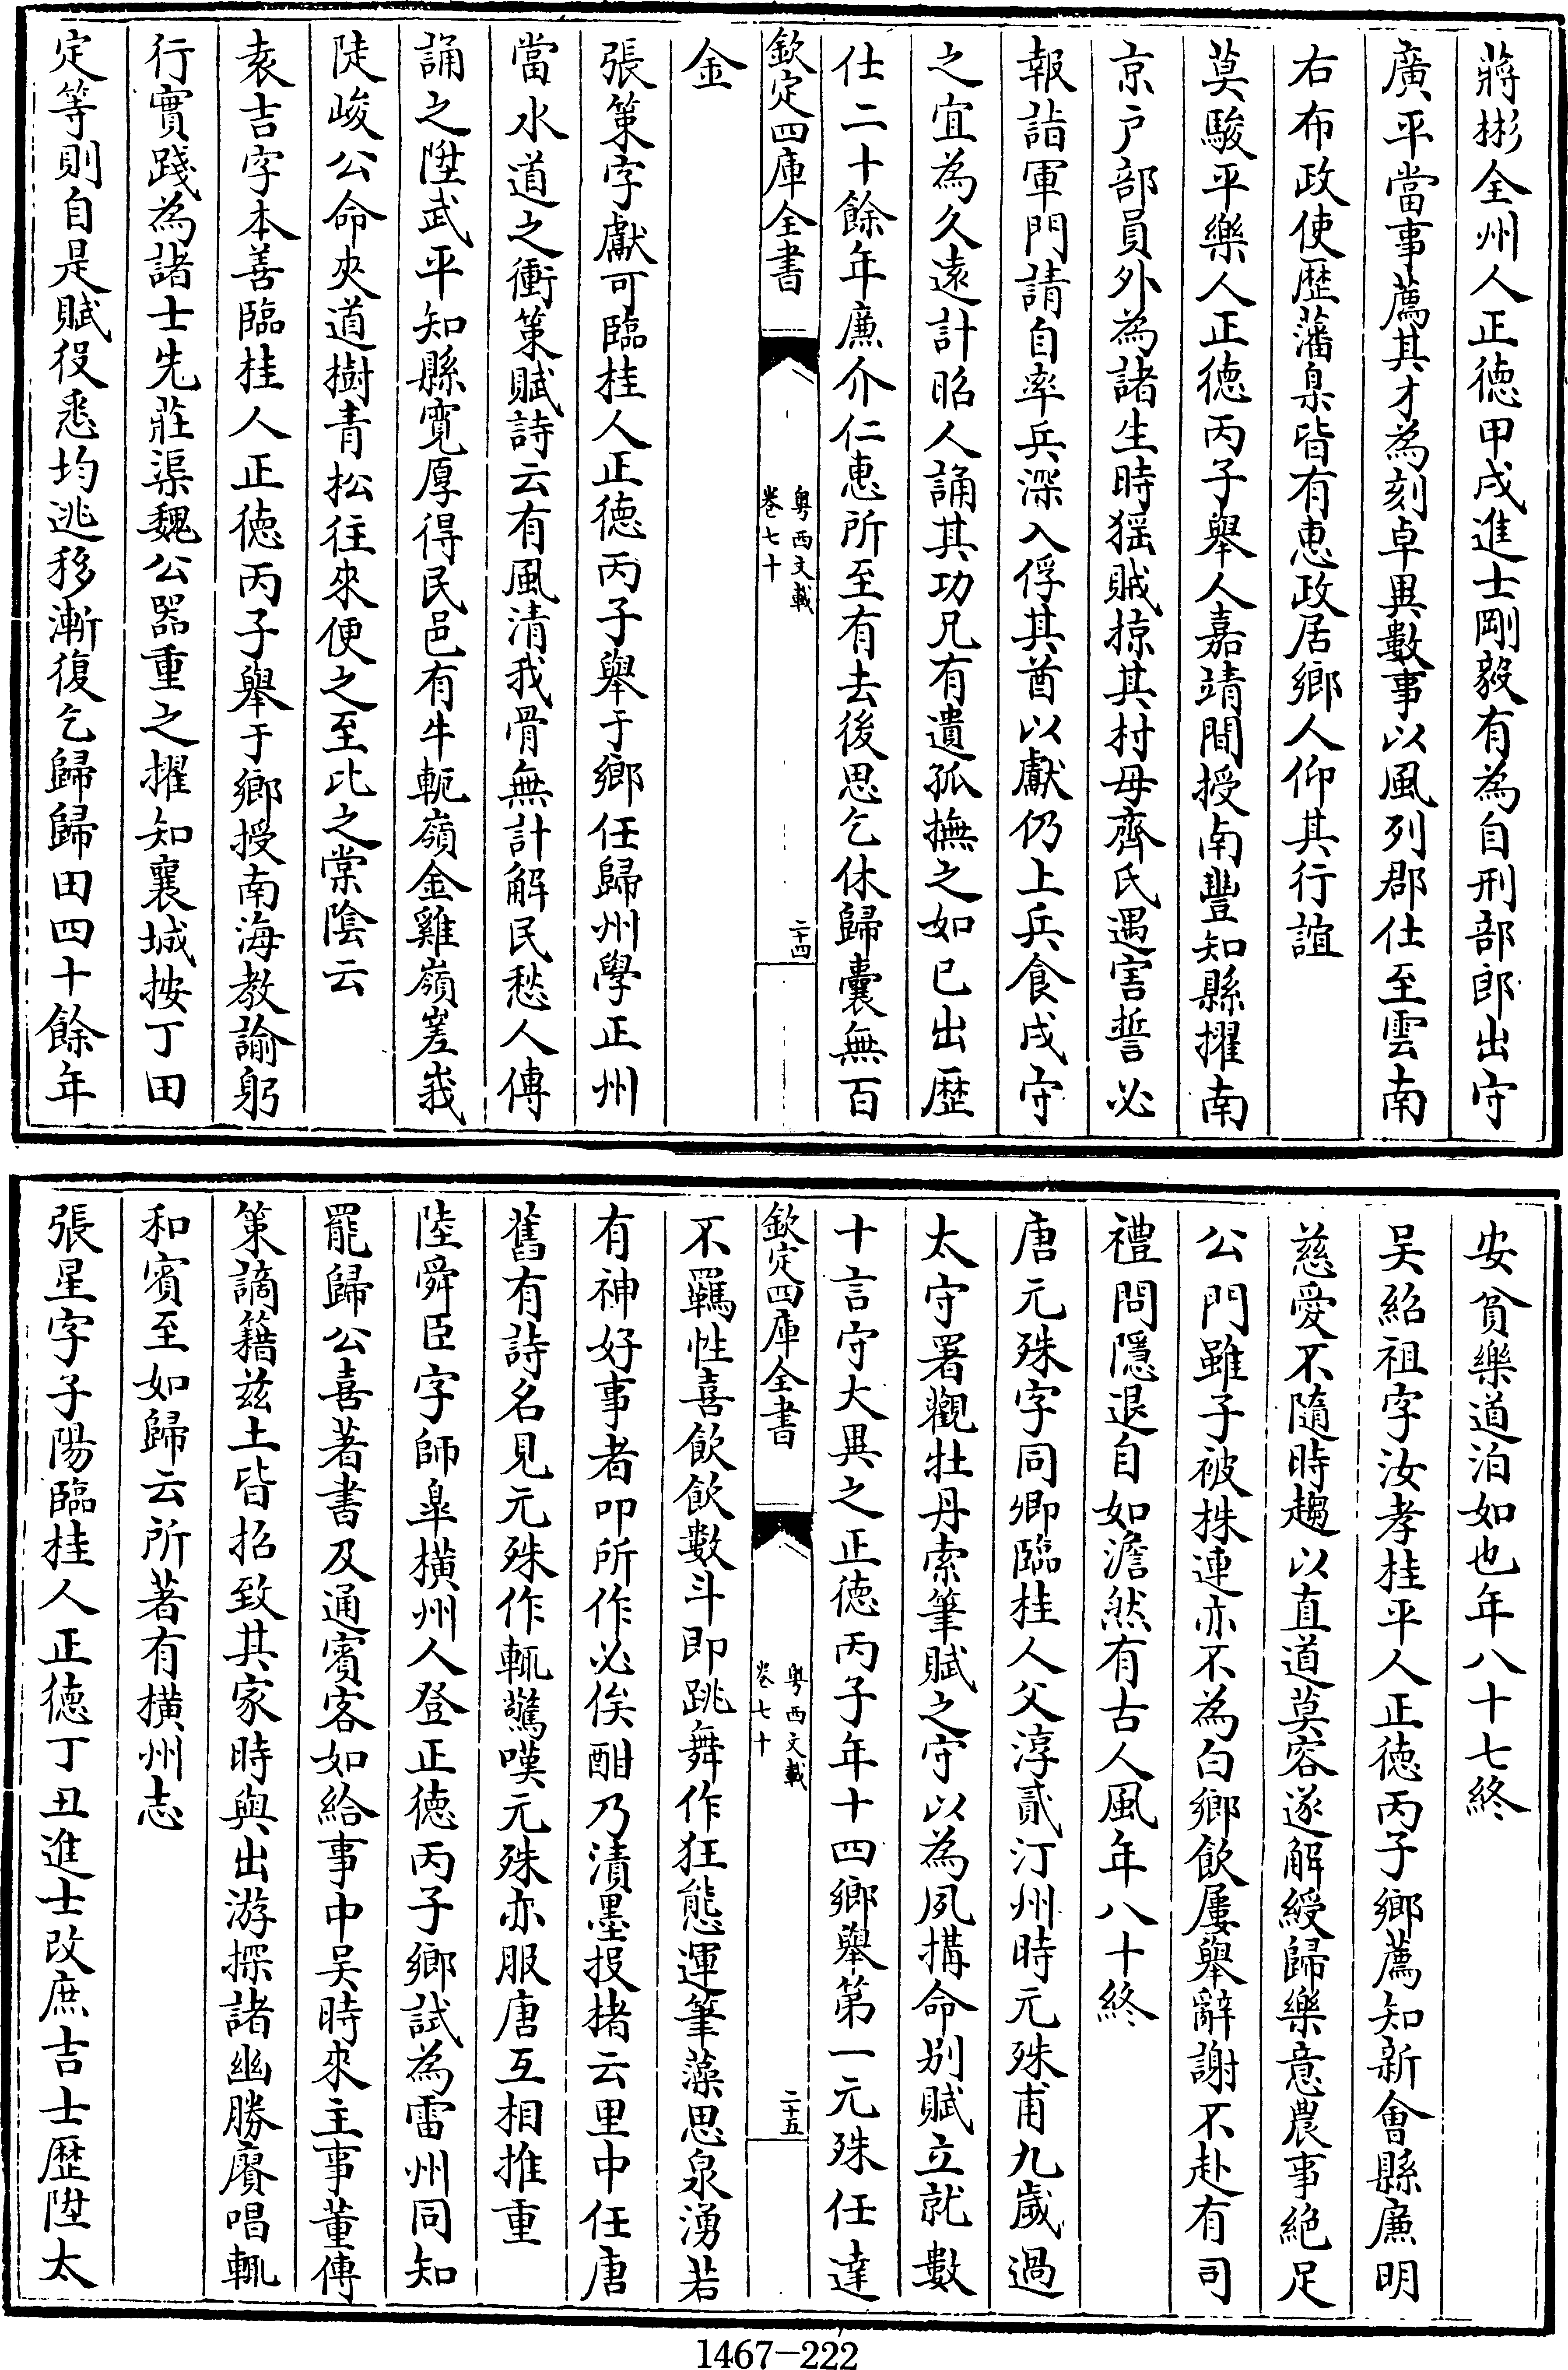 蔣彬全州人正德甲戌進士剛毅有為自刑部郎出守
廣平當事薦其才為刻卓異數事以風列郡仕至雲南
右布政使歴藩臬皆有惠政居鄉人仰其行誼
莫駿平樂人正德丙子舉人嘉靖間授南豐知縣擢南
京户部員外為諸生時猺賊掠其村母齊氏遇害誓必
報詣軍門請自率兵深入俘其酋以獻仍上兵食戍守
之宜為久遠計昭人誦其功兄有遺孤撫之如已出歴
仕二十餘年廉介仁惠所至有去後思乞休歸囊無百
欽定四庫全書
粤西文載
卷七十
二十四
金
張策字獻可臨桂人正德丙子舉于鄉任歸州學正州
當水道之衝策賦詩云有風清我骨無計解民愁人傳
誦之陞武平知縣寛厚得民邑有牛軛嶺金雞嶺嵳峩
陡峻公命夾道樹青松往來便之至比之棠隂云
袁吉字本善臨桂人正德丙子舉于鄉授南海教諭躬
行實踐為諸士先莊渠魏公器重之擢知襄城按丁田
定等則自是賦役悉均逃移漸復乞歸歸田四十餘年
安貧樂道泊如也年八十七終
吴紹祖字汝孝桂平人正德丙子鄉薦知新會縣廉明
慈愛不隨時趨以直道莫容遂解綬歸樂意農事絶足
公門雖子被株連亦不為白鄉飲屢舉辭謝不赴有司
禮問隱退自如澹然有古人風年八十終
唐元殊字同卿臨桂人父淳貳汀州時元殊甫九歲過
太守署觀牡丹索筆賦之守以為夙搆命别賦立就數
十言守大異之正德丙子年十四鄉舉第一元殊任達
欽定四庫全書
粤西文載
卷七十
二十五
不羈性喜飲飲數斗即跳舞作狂態運筆藻思泉湧若
有神好事者叩所作必俟酣乃漬墨投楮云里中任唐
舊有詩名見元殊作輒驚嘆元殊亦服唐互相推重
陸舜臣字師臯横州人登正德丙子鄉試為雷州同知
罷歸公喜著書及通賓客如給事中吴時來主事董傳
策謫籍兹土皆招致其家時與出游探諸幽勝賡唱輒
和賓至如歸云所著有横州志
張星字子陽臨桂人正德丁丑進士改庶吉士歴陞太
1467-222